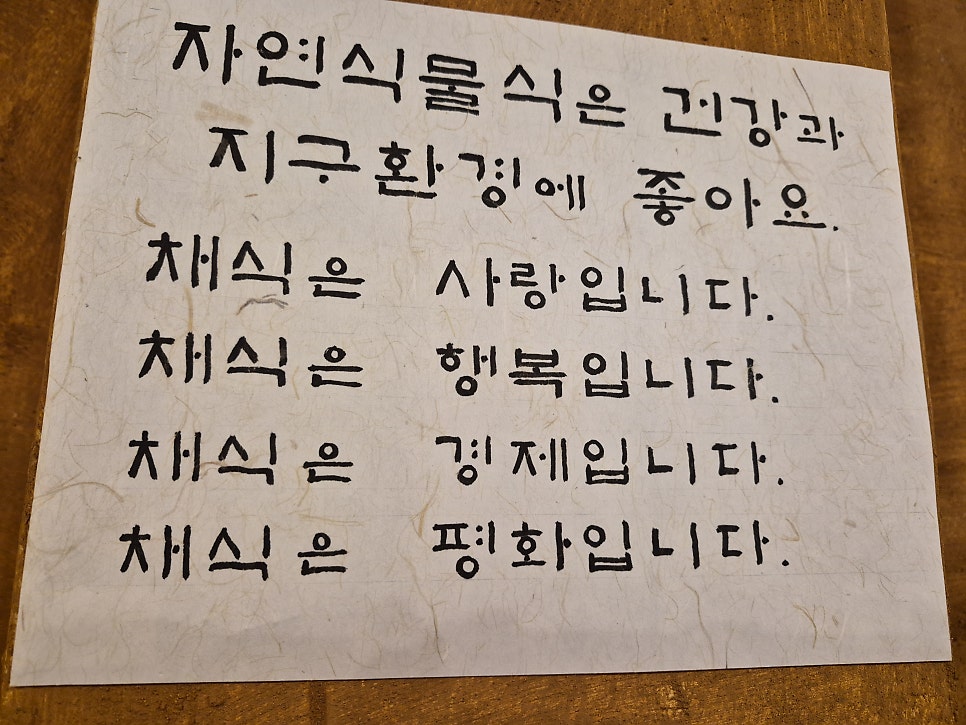 자연식물식은 건강과
지구환경에 좋아요.
채식은 사랑입니다.
채식은 행복입니다.
채식은 경제입니다.
채식은 평화입니다.